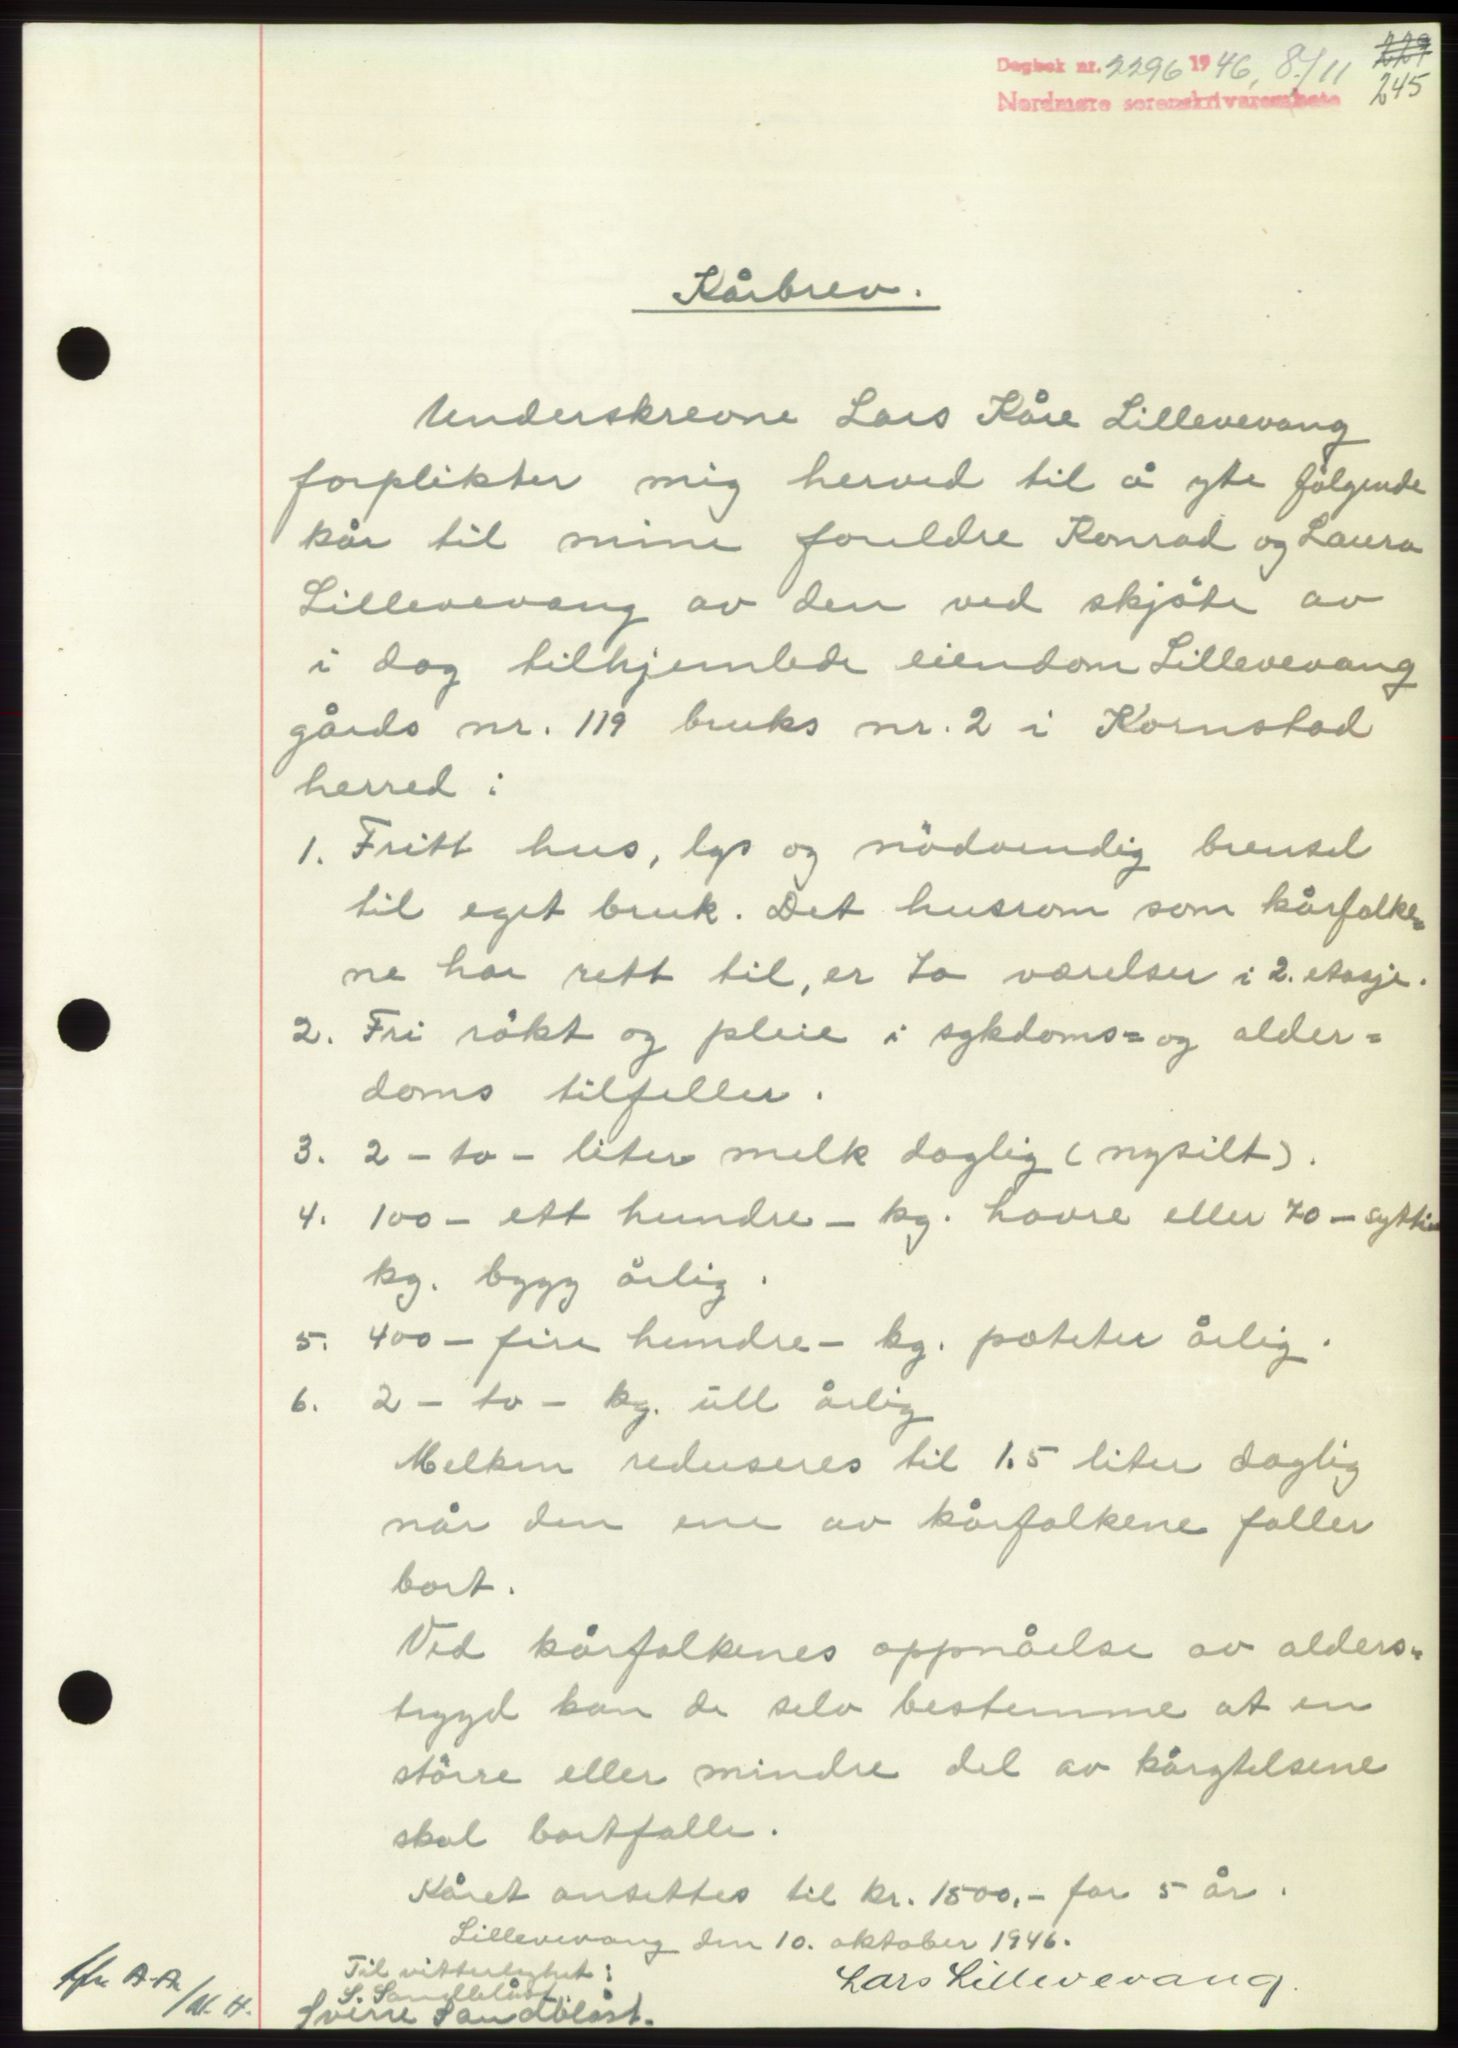 Dagbok nr. 2296 1946, 8./11
Nordmøre sorenskriverembete
229
245
Kårbrev.
Underskrevne Lars Kåre Lillevevang
forplikter mig herved til å yte følgende
kår til mine foreldre Konrad og Laura
Lillevevang av den ved skjöte av
i dag tilhjemlede eiendom Lillevevang
gårds nr. 119 bruks nr. 2 i Kornstad
herred :
1. Fritt hus, lys og nödvendig brensel
til eget bruk. Det husrom som kårfolke=
ne har rett til, er to værelser i 2. etasje.
2. Fri rökt og pleie i sykdoms= og alder=
doms tilfeller.
3. 2 – to – liter melk daglig ( nysilt ).
4. 100 – ett hundre – kg. havre eller 70 – sytti
kg. bygg årlig.
5. 400 – fire hundre – kg. poteter årlig.
6. 2 – to – kg. ull årlig
Melken reduseres til 1.5 liter daglig
når den ene av kårfolkene faller
bort.
Ved kårfolkenes oppnåelse av alders=
trygd kan de selv bestemme at en
större eller mindre del av kårytelsene
skal bortfalle.
Kåret ansettes til kr. 1500,– for 5 år.
Lillevevang den 10. oktober 1946.
Til vitterlighet :
Lars Lillevevang.
S. Sandblåst
Sverre Sandblåst.
/M. H.